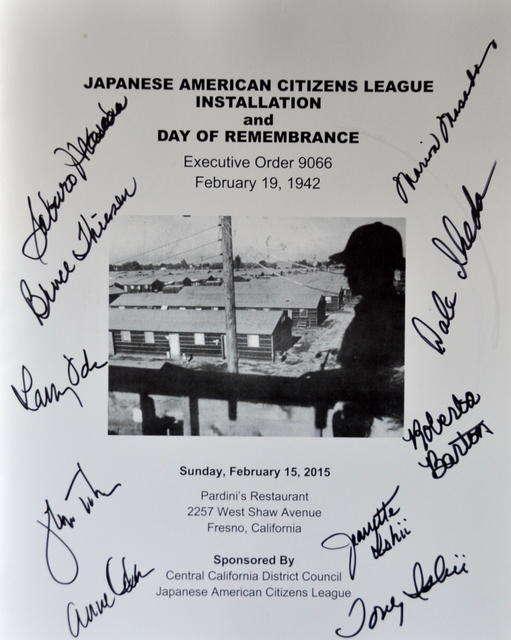 JAPANESE AMERICAN CITIZENS LEAGUE
INSTALLATION
and
DAY OF REMEMBRANCE
Executive Order 9066
February 19, 1942
Saburo
Bruce Thiesen
Larry Oda
Marion Masada
Dale Ikeda
Roberta
Barton
Sunday, February 15, 2015
Pardini's Restaurant
2257 West Shaw Avenue
Fresno, California
Sponsored By
Central California District Council
Japanese American Citizens League
Jeanette
Ishii
Tony Ishii